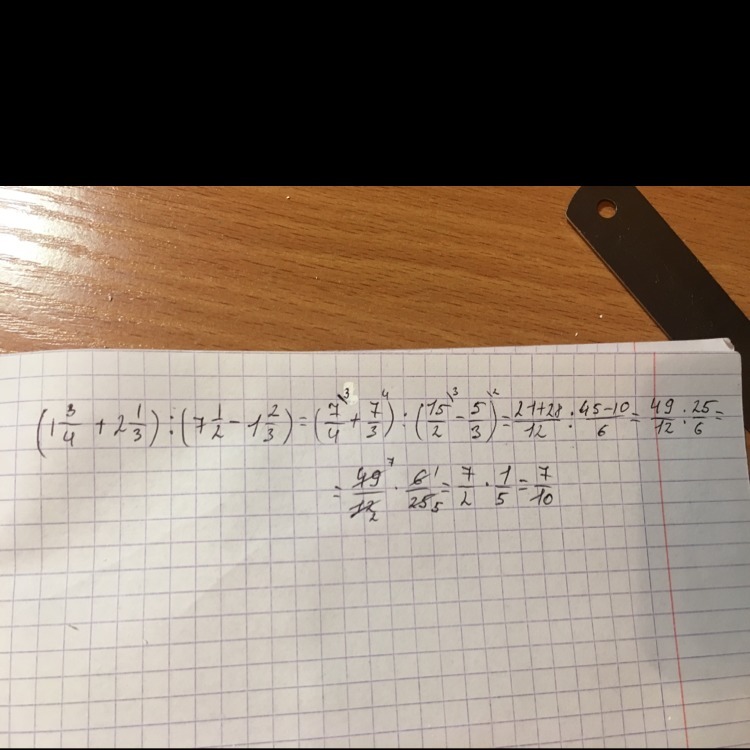 (1 3/4 + 2 1/3) : (7 1/2 - 1 2/3) = (7/4 \3 + 7/3 \4) : (15/2 \3 - 5/3 \2) = 21+28/12 : 45-10/6 = 49/12 : 25/6 =
= 49 7/12 2 · 6 1/25 5 = 7/2 · 1/5 = 7/10